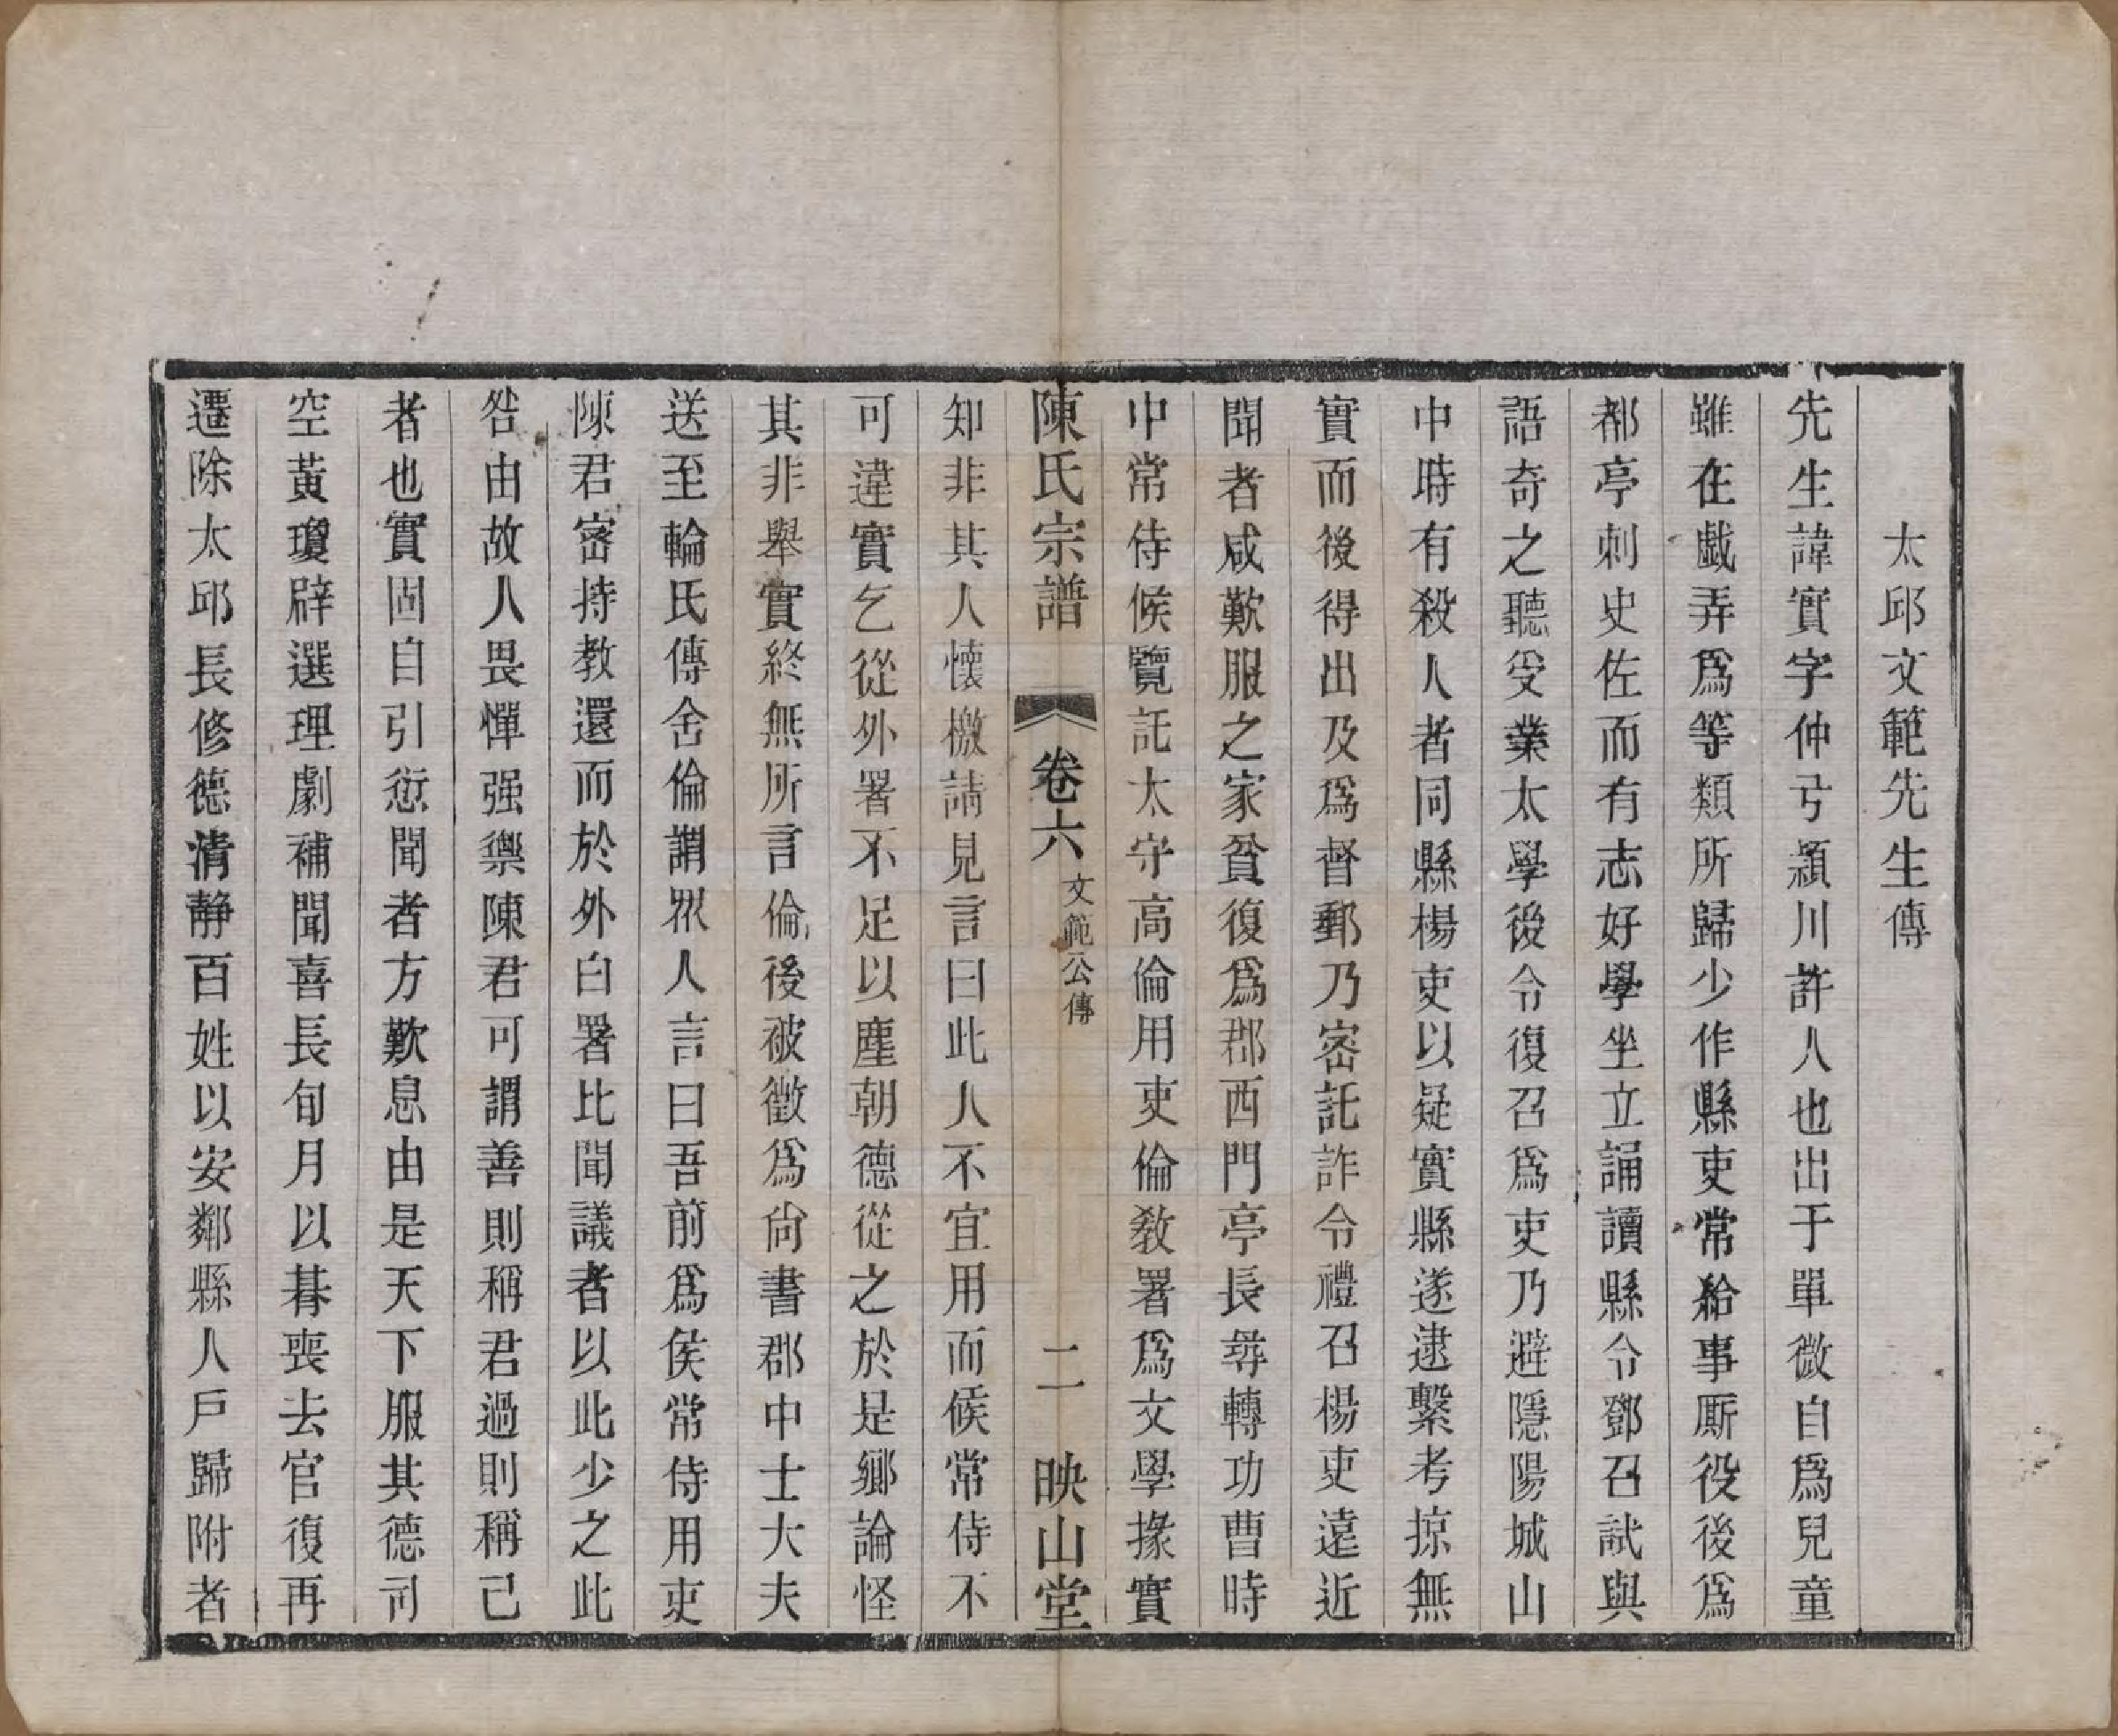 太邱文範先生傳
先生諱實字仲弓潁川許人也出于單微自爲兒童
雖在戯弄爲等類所歸少作縣吏常給事厮役後爲
都亭刺史佐而有志好學坐立誦讀縣令鄧召試與
語奇之聽受業太學後令復召爲吏乃避隱陽城山
中時有殺人者同縣楊吏以疑實縣遂逮繫考掠無
實而後得出及爲督郵乃密託詐令禮召楊吏遠近
聞者咸歎服之家貧復爲郡西門亭長尋轉功曹時
中常侍候覽託太守高倫用吏倫敎署爲文學掾實
陳氏宗譜 卷六 文範公傳 二 映山堂
知非其人懷檄請見言曰此人不宜用而候常侍不
可違實乞從外署不足以塵朝德從之於是鄉論怪
其非舉實終無所言倫後被徵爲尙書郡中士大夫
送至輪氏傳舍倫謂眾人言曰吾前爲侯常侍用吏
陳君密持教還而於外白署比聞議者以此少之此
咎由故人畏憚强禦陳君可謂善則稱君過則稱己
者也實固自引愆聞者方歎息由是天下服其德司
空黃瓊辟選理劇補聞喜長旬月以朞喪去官復再
遷除太邱長修德清靜百姓以安鄰縣人戶歸附者